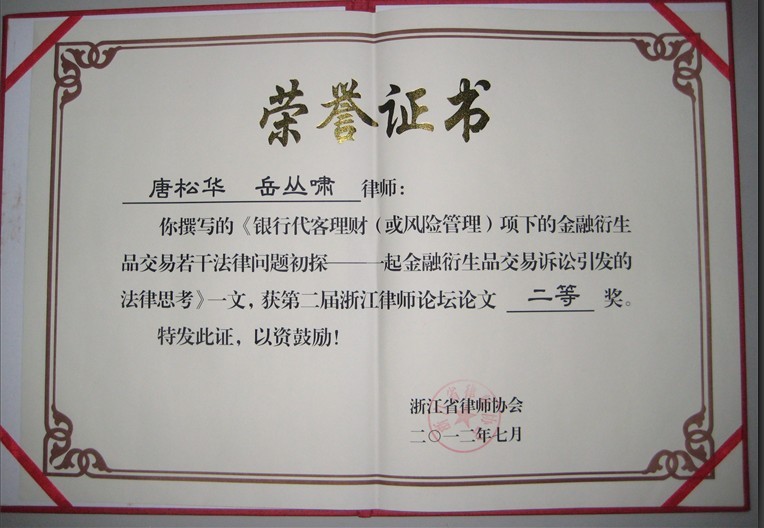 荣誉证书
唐松华 岳丛啸 律师：
你撰写的《银行代客理财（或风险管理）项下的金融衍生
品交易若干法律问题初探——一起金融衍生品交易诉讼引发的
法律思考》一文，获第二届浙江律师论坛论文 二等 奖。
特发此证，以资鼓励！
浙江省律师协会
二〇一二年七月